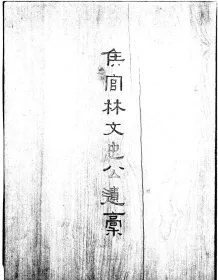 矦官林文忠公遺稾